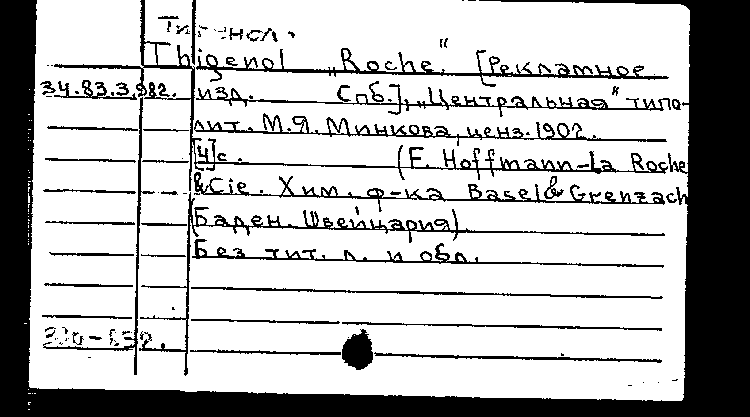 Тигенол.
Thigenol „Roche." [Рекламное
34.83.3.982. изд. Спб.], „Центральная" типо-
лит. М.Я. Минкова, ценз. 1902.
[4]с. (F. Hoffmann-La Roche
&Cie. Хим. ф-ка Basel & Grenzach
(Баден. Швейцария).
Без тит. л. и обл.